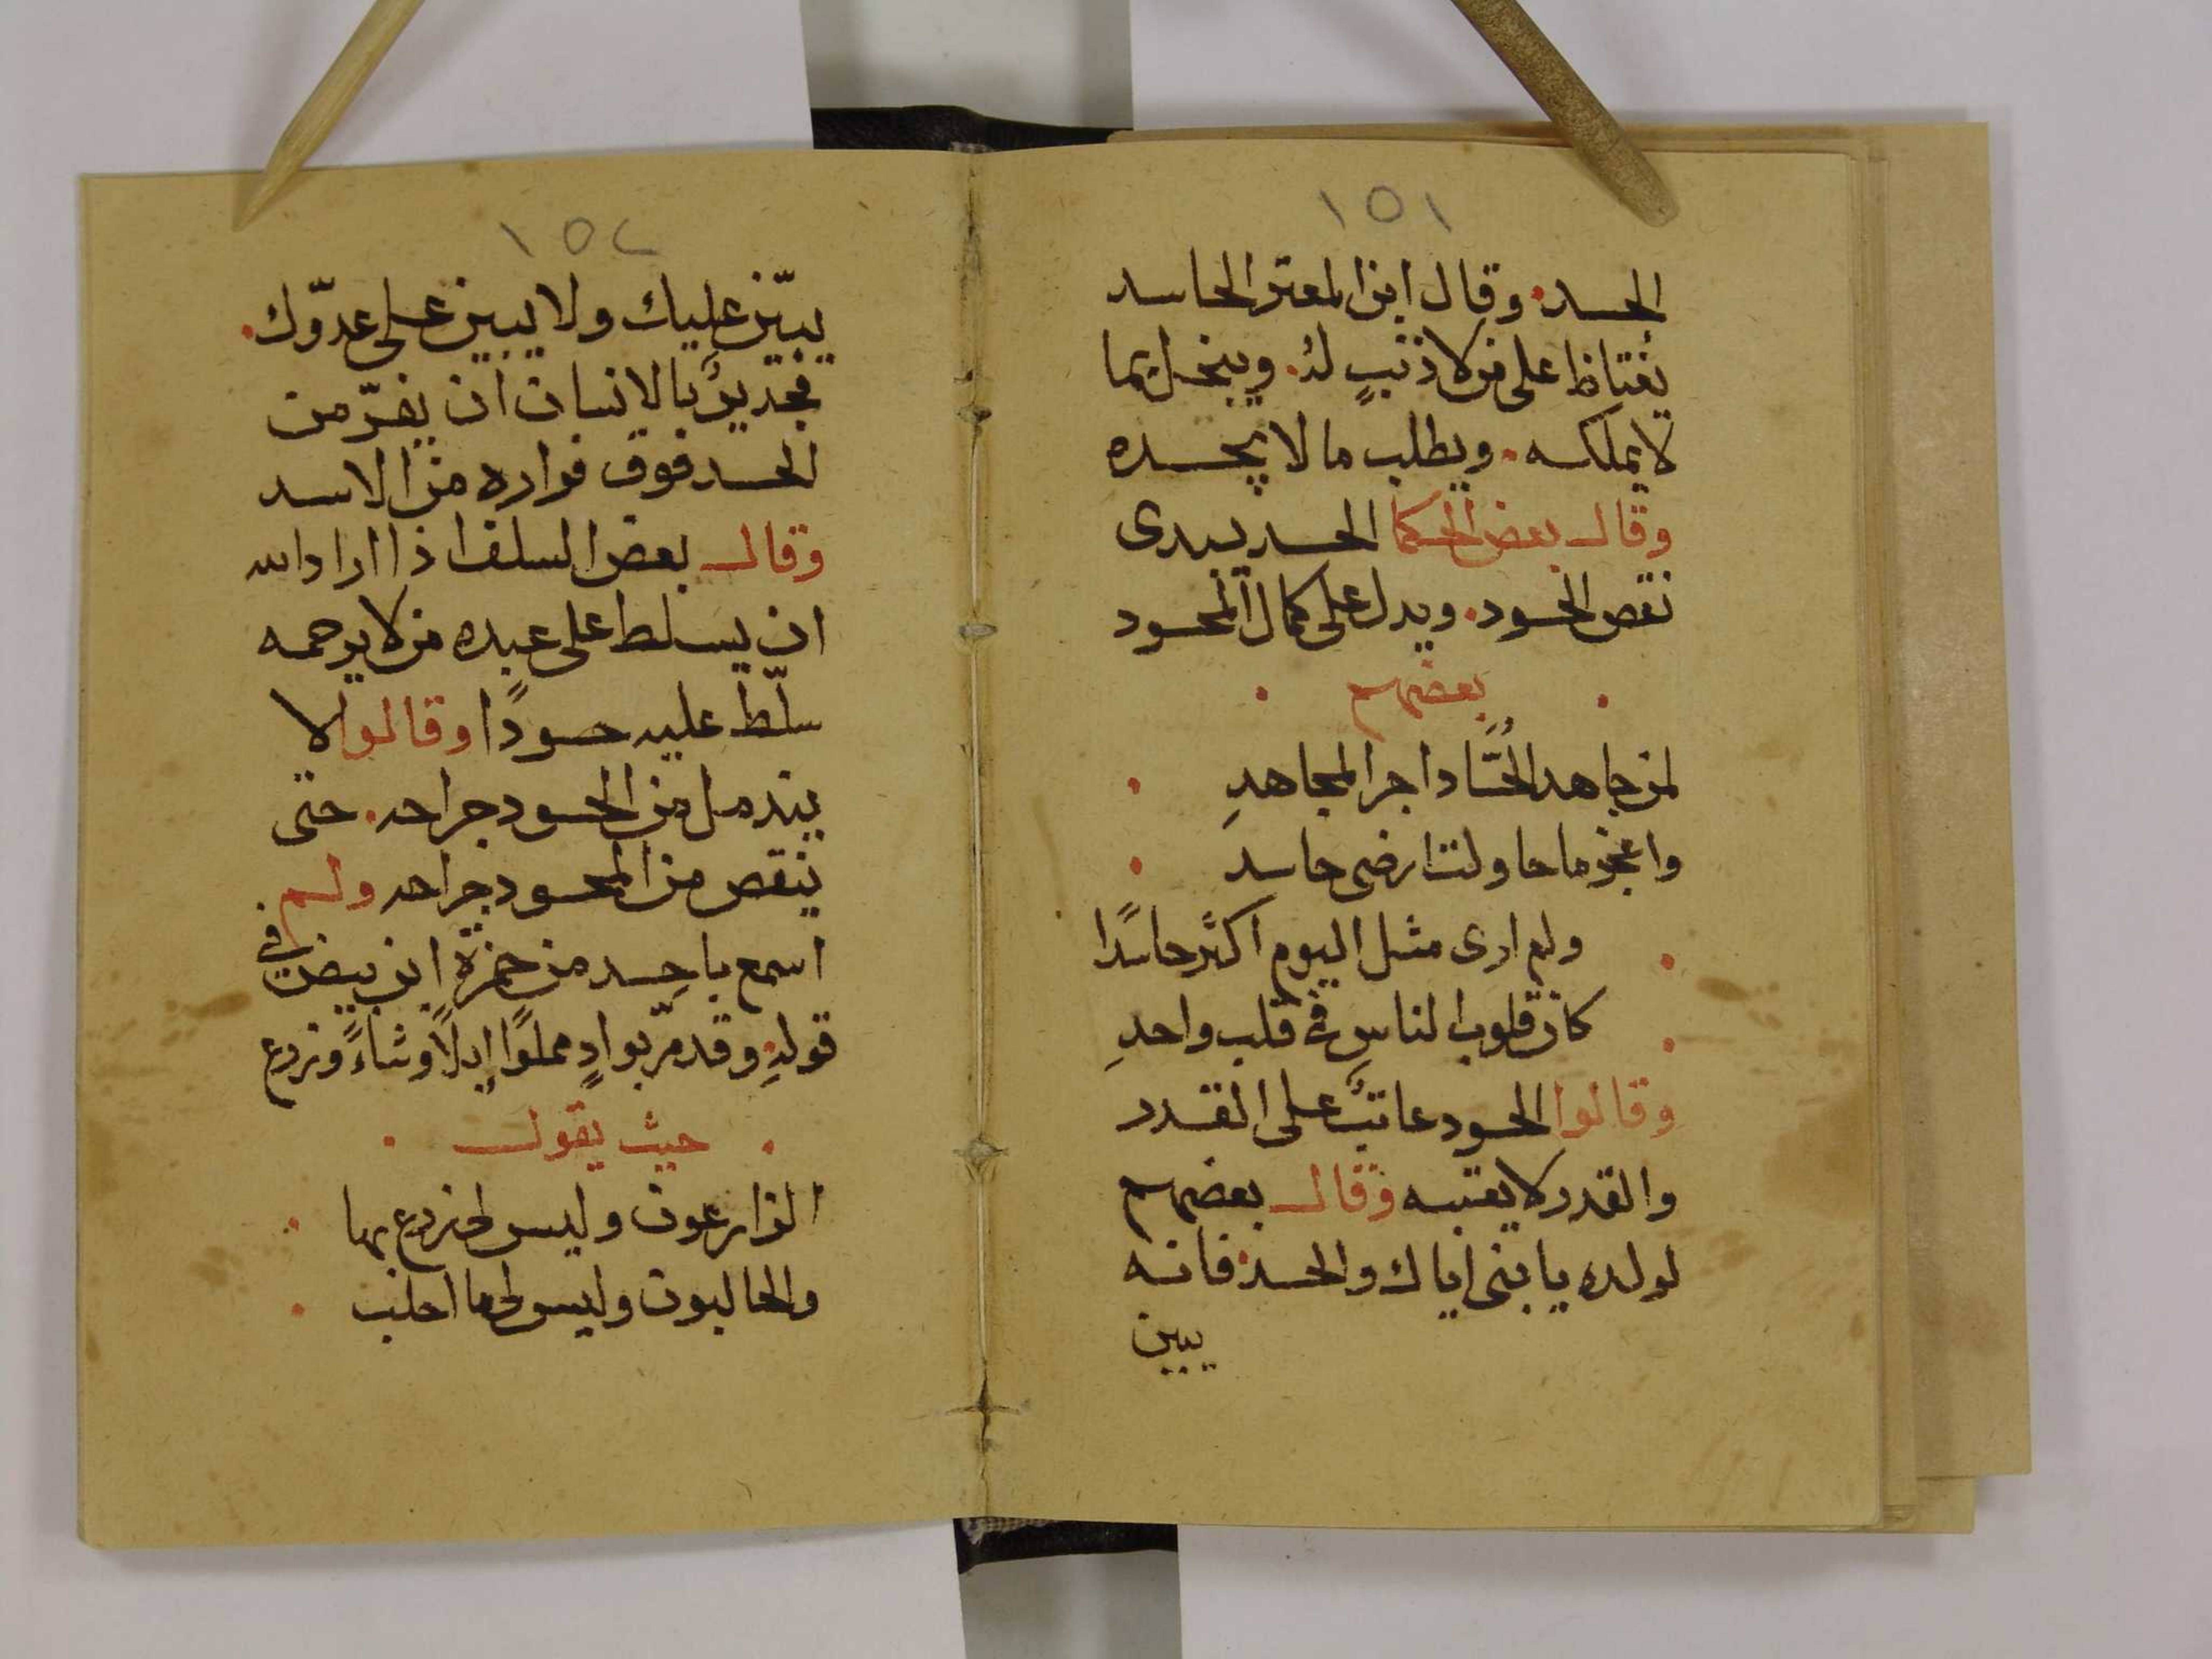 ١٥١
الحسد. وقال ابن المعتز الحاسد
يغتاظ على من لا ذنبٍ لهُ. ويبخل بما
لا يملكه. ويطلب ما لا يجده
وقال بعض الحكما الحسد يبدى
نقص الحسود. ويدل على كمال المحسود
بعضهم
لمن جاهد الحُسَّاد اجر المجاهدِ
واعجز ما حاولت ارضى حاسد
ولم ارى مثل اليوم اكثر حاسدًا
كان قلوب الناسِ فى قلب واحدِ
وقالوا الحسود عاتبٌ على القدر
والقدر لا يعتبه وقال بعضهم
لولده يا بنى اياك والحسد فانه
يبين
١٥٢
يبيّن عليك ولا يبين على عدوّك.
فجديرٌ بالانسان ان يفرّ من
الحسد فوق فراره من الاسد
وقال بعض السلف اذا اراد الله
ان يسلط على عبده من لا يرحمه
سلّط عليه حسودًا وقالوا لا
يندمل من الحسود جراحه. حتى
ينقص من المحسود جراحه ولم
اسمع باحسد من حمزة ابن بيض فى
قولهِ وقد مرّ بوادٍ مملوًا إبلًا وشاءً وزرع
حيث يقول
الزارعون وليس لى زرع بها
والحالبون وليس لى ما احلب